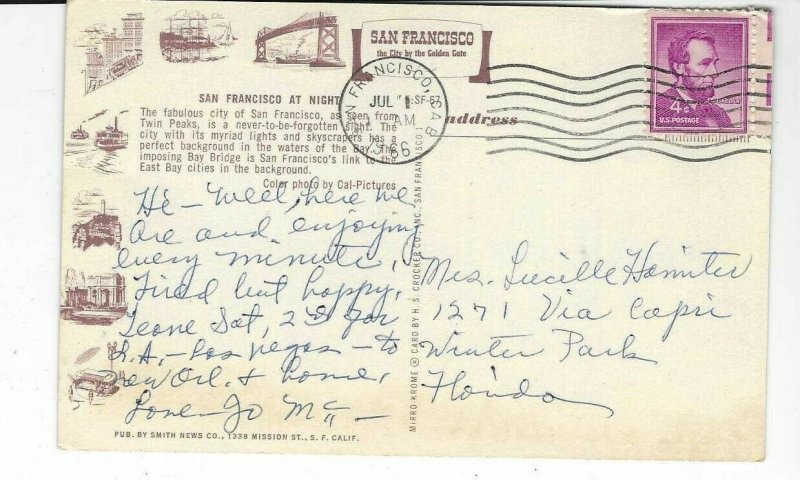 SAN FRANCISCO
the City by the Golden Gate
SAN FRANCISCO AT NIGHT
The fabulous city of San Francisco, as seen from
Twin Peaks, is a never-to-be-forgotten sight. The
city with its myriad lights and skyscrapers has a
perfect background in the waters of the Bay. The
imposing Bay Bridge is San Francisco's link to the
East Bay cities in the background.
Color photo by Cal-Pictures
SF-67
address
SAN FRANCISCO, CA
JUL 1
AM
1966
4¢
U.S. POSTAGE
LINCOLN
Hi - Well, here we
are and enjoying
every minute,
Tired but happy,
Leave Sat, 2nd for
L.A. - Las Vegas - to
New Orl. & home,
Love - Jo
Mrs. Lucille
1271 Via Capri
Winter Park
Florida
MIRRO-KROME ® CARD BY H. S. CROCKER CO., INC., SAN FRANCISCO 1
PUB. BY SMITH NEWS CO., 1338 MISSION ST., S. F. CALIF.